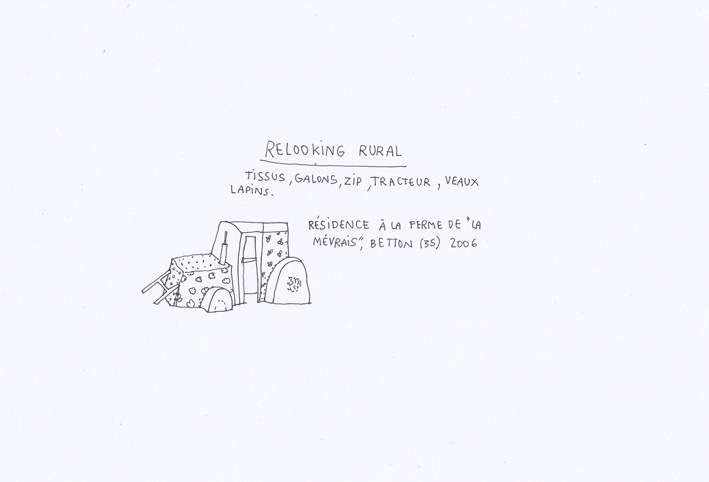 RELOOKING RURAL
TISSUS, GALONS, ZIP, TRACTEUR, VEAUX
LAPINS.
RÉSIDENCE À LA FERME DE "LA
MÉVRAIS", BETTON (35) 2006